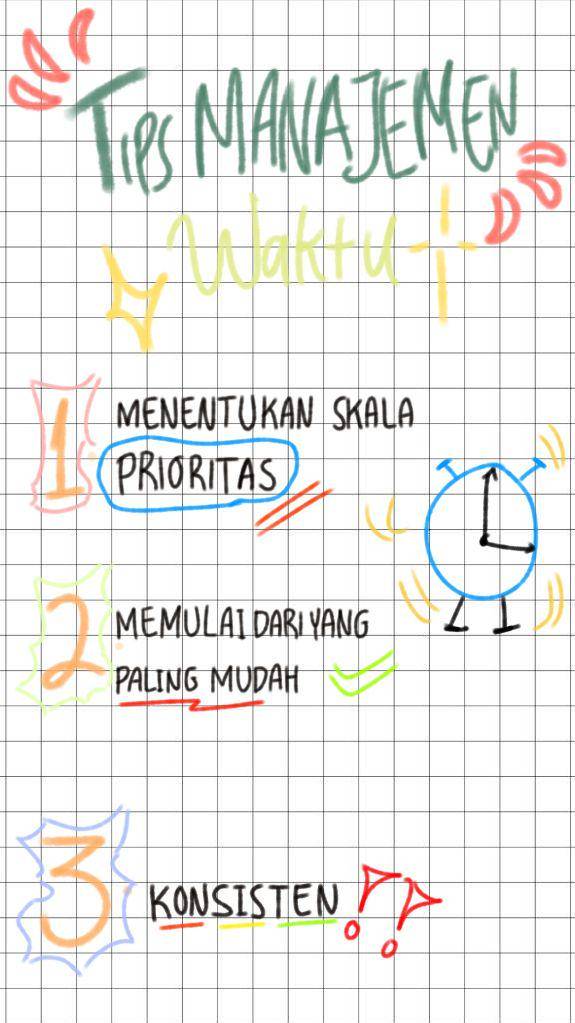 Tips MANAJEMEN
Waktu
1
MENENTUKAN SKALA
PRIORITAS
2
MEMULAI DARI YANG
PALING MUDAH
3
KONSISTEN